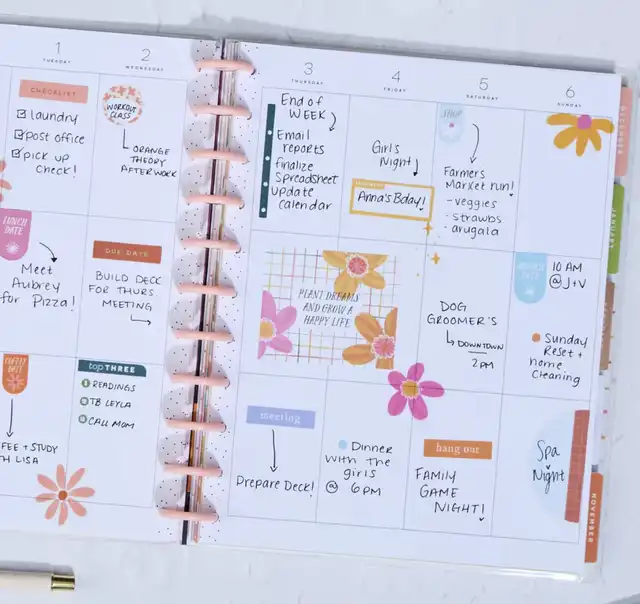 1
TUESDAY
2
WEDNESDAY
CHECKLIST
laundry
post office
pick up
check!
WORKOUT
CLASS
ORANGE
THEORY
AFTERWORK
LUNCH
DATE
Meet
Aubrey
for Pizza!
DUE DATE
BUILD DECK
FOR THURS
MEETING
COFFEE
DATE
FEE + STUDY
TH LISA
top THREE
READINGS
TB LEYLA
CALL MOM
3
THURSDAY
4
FRIDAY
5
SATURDAY
6
SUNDAY
End of
WEEK
Email
reports
finalize
Spreadsheet
update
calendar
Girls
Night
Anna's Bday!
SHOP
Farmers
Market run!
- veggies
- strawbs
- arugala
PLANT DREAMS
AND GROW A
HAPPY LIFE
DOG
GROOMER'S
DOWNTOWN
2PM
10 AM
@ J+V
Sunday
Reset +
home
Cleaning
meeting
Prepare Deck!
Dinner
with the
girls
@ 6PM
hang out
FAMILY
GAME
NIGHT!
Spa
Night
DECEMBER
JANUARY
NOVEMBER